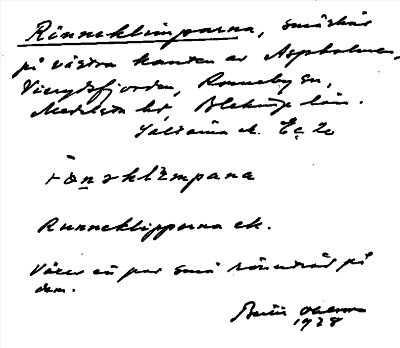 Rönneklimparna, småskär
på västra kanten av Aspholmen,
Vierydsfjorden, Ronneby sn,
Medelsta hd, Blekinge län.
ek. 
Runneklipporna ek.
Växer en par små rönnträd på
dem.
1928